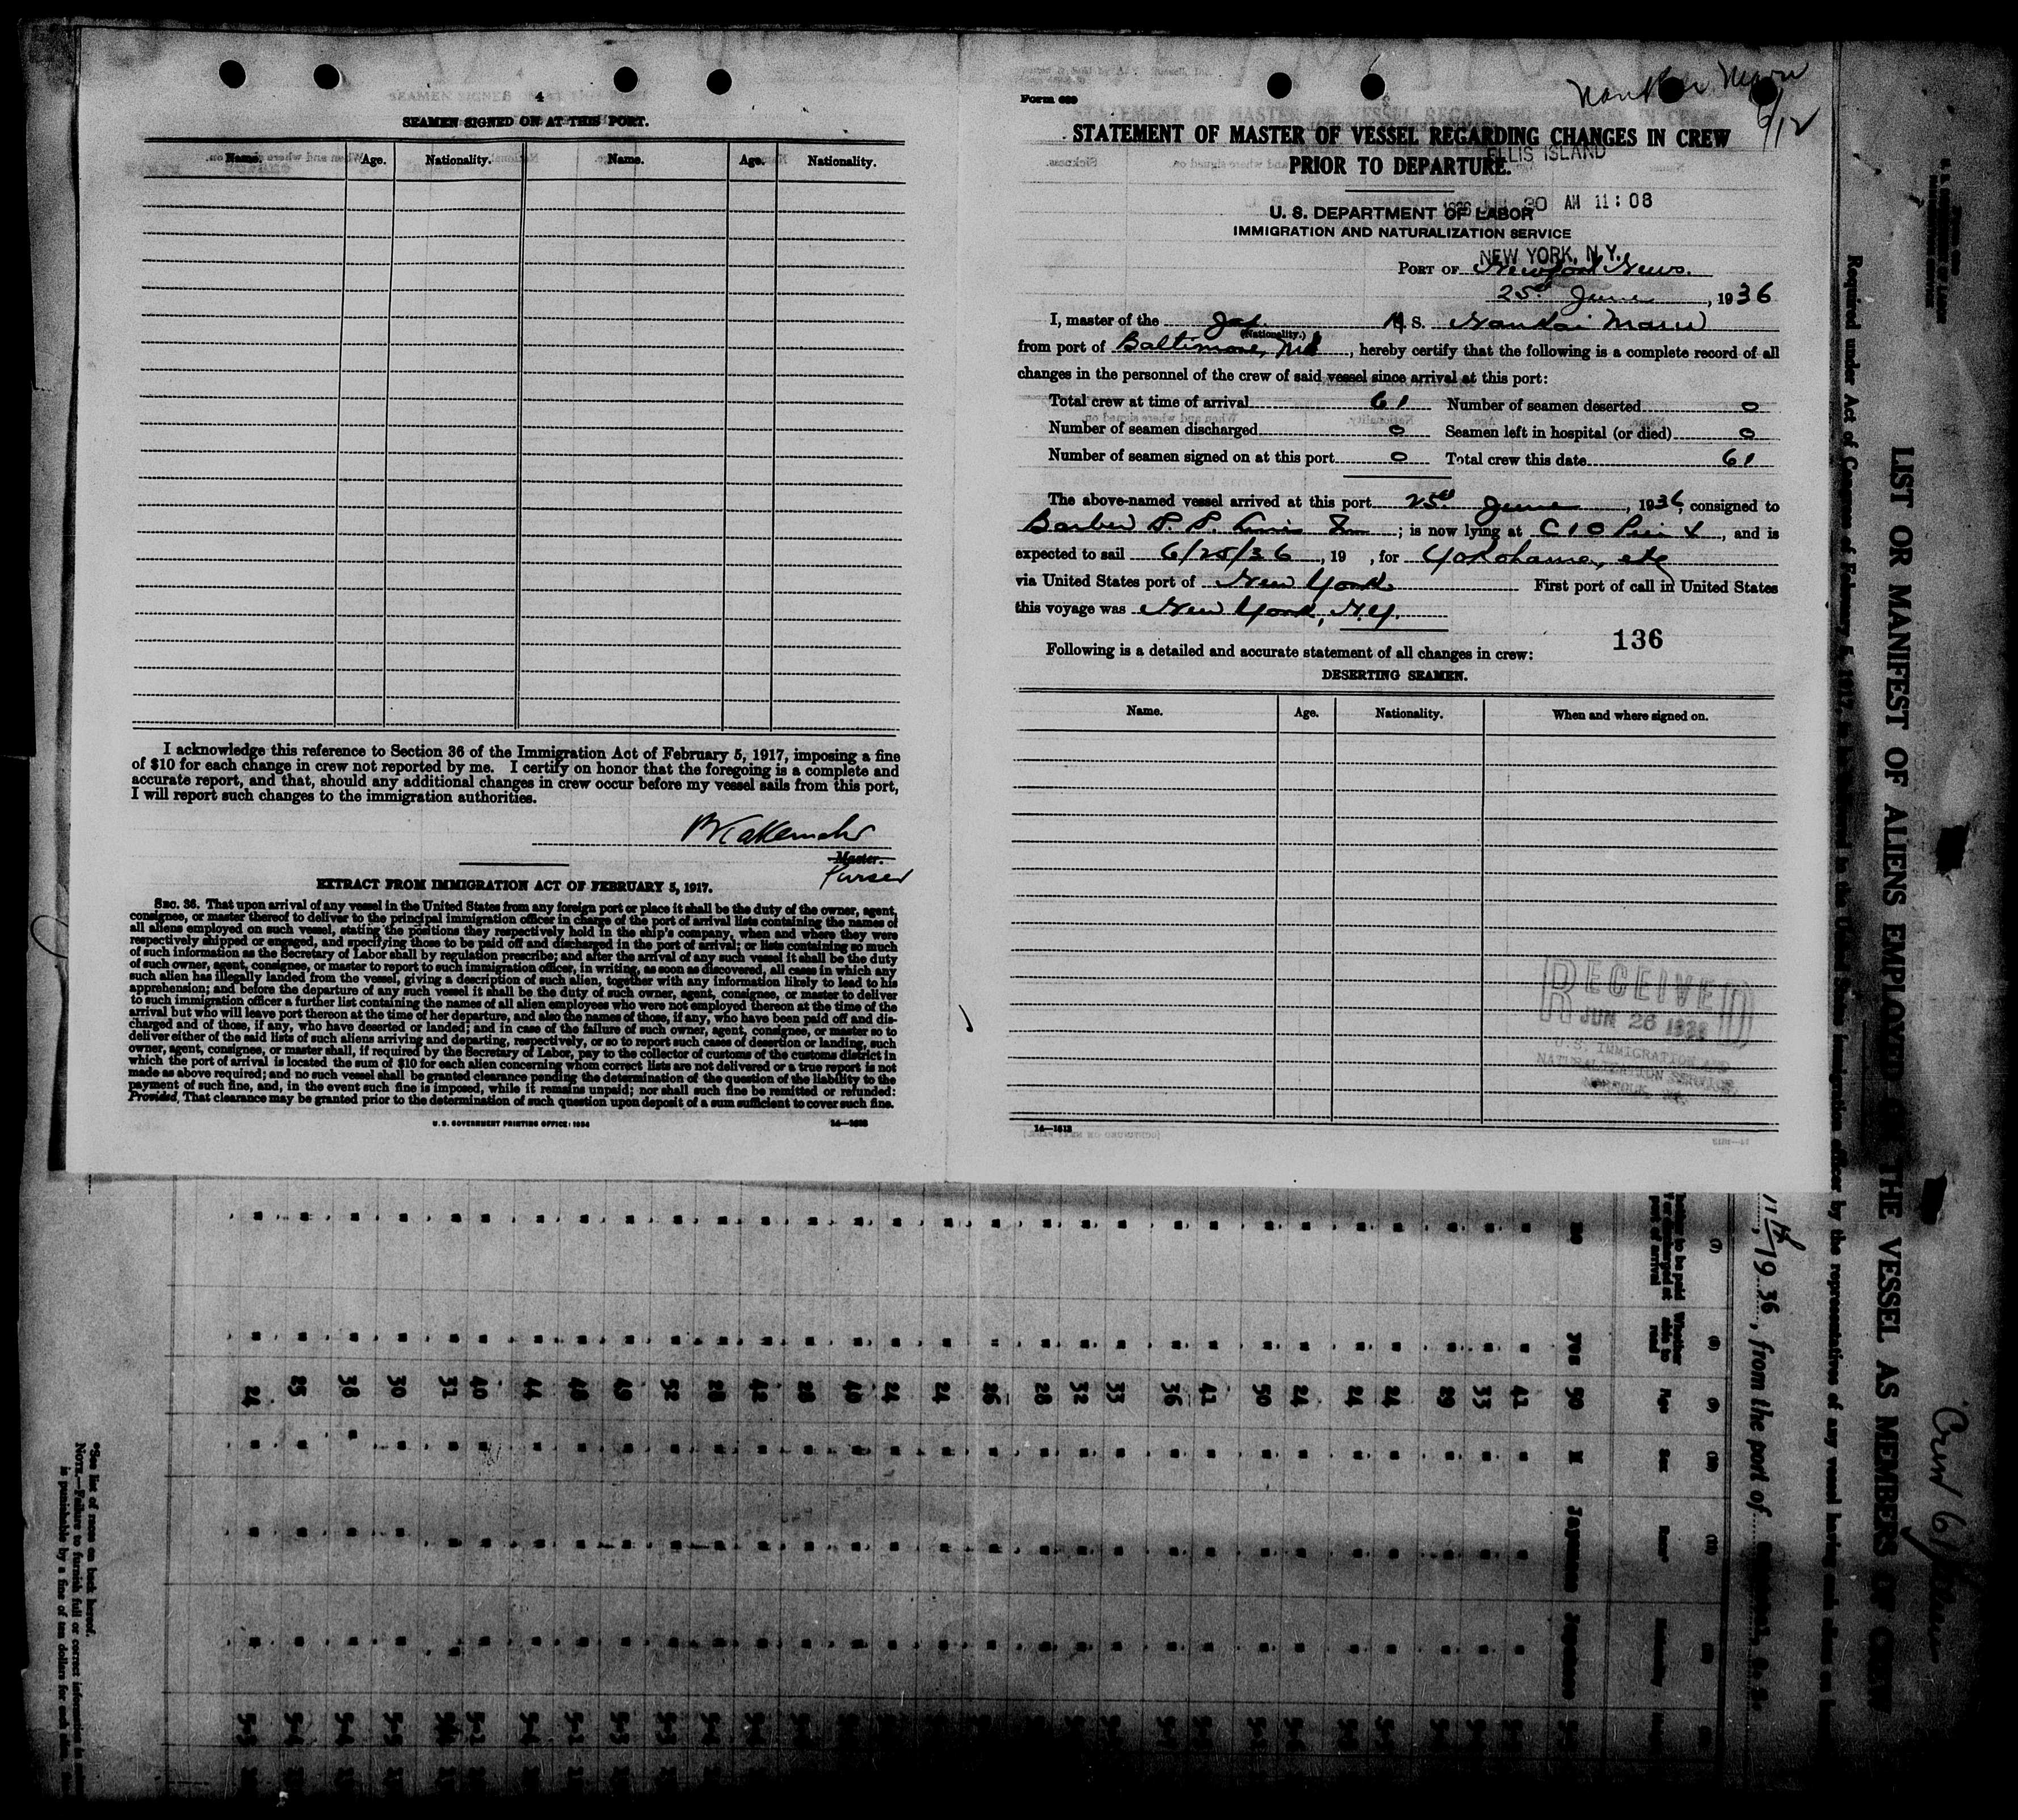 4
SEAMEN SIGNED ON AT THIS PORT.
Name. Age. Nationality. Name. Age. Nationality.
I acknowledge this reference to Section 36 of the Immigration Act of February 5, 1917, imposing a fine
of $10 for each change in crew not reported by me. I certify on honor that the foregoing is a complete and
accurate report, and that, should any additional changes in crew occur before my vessel sails from this port,
I will report such changes to the immigration authorities.
Master.
Purser
EXTRACT FROM IMMIGRATION ACT OF FEBRUARY 5, 1917.
SEC. 36. That upon arrival of any vessel in the United States from any foreign port or place it shall be the duty of the owner, agent,
consignee, or master thereof to deliver to the principal immigration officer in charge of the port of arrival lists containing the names of
all aliens employed on such vessel, stating the positions they respectively hold in the ship's company, when and where they were
respectively shipped or engaged, and specifying those to be paid off and discharged in the port of arrival; or lists containing so much
of such information as the Secretary of Labor shall by regulation prescribe; and after the arrival of any such vessel it shall be the duty
of such owner, agent, consignee, or master to report to such immigration officer, in writing, as soon as discovered, all cases in which any
such alien has illegally landed from the vessel, giving a description of such alien, together with any information likely to lead to his
apprehension; and before the departure of any such vessel it shall be the duty of such owner, agent, consignee, or master to deliver
to such immigration officer a further list containing the names of all alien employees who were not employed thereon at the time of the
arrival but who will leave port thereon at the time of her departure, and also the names of those, if any, who have been paid off and dis-
charged and of those, if any, who have deserted or landed; and in case of the failure of such owner, agent, consignee, or master so to
deliver either of the said lists of such aliens arriving and departing, respectively, or so to report such cases of desertion or landing, such
owner, agent, consignee, or master shall, if required by the Secretary of Labor, pay to the collector of customs of the customs district in
which the port of arrival is located the sum of $10 for each alien concerning whom correct lists are not delivered or a true report is not
made as above required; and no such vessel shall be granted clearance pending the determination of the question of the liability to the
payment of such fine, and, in the event such fine is imposed, while it remains unpaid; nor shall such fine be remitted or refunded:
Provided, That clearance may be granted prior to the determination of such question upon deposit of a sum sufficient to cover such fine.
U. S. GOVERNMENT PRINTING OFFICE: 1934
Form 689
Maru
6/12
STATEMENT OF MASTER OF VESSEL REGARDING CHANGES IN CREW
PRIOR TO DEPARTURE.
ELLIS ISLAND
30 AM 11:08
U. S. DEPARTMENT OF LABOR
IMMIGRATION AND NATURALIZATION SERVICE
NEW YORK, N.Y.
PORT OF Newport News.
25th June, 1936
I, master of the Jap. M. S. Nankai Maru
(Nationality.)
from port of Baltimore, Md, hereby certify that the following is a complete record of all
changes in the personnel of the crew of said vessel since arrival at this port:
Total crew at time of arrival 61 Number of seamen deserted 0
Number of seamen discharged 0 Seamen left in hospital (or died) 0
Number of seamen signed on at this port 0 Total crew this date 61
The above-named vessel arrived at this port 25th June, 1936, consigned to
Barber S. S. Lines Inc; is now lying at C & O Pier, and is
expected to sail 6/25/36, 19 , for Yokohama, etc
via United States port of New York First port of call in United States
this voyage was New York, N.Y.
136
Following is a detailed and accurate statement of all changes in crew:
DESERTING SEAMEN.
Name. Age. Nationality. When and where signed on.
RECEIVED
JUN 26 1936
U. S. IMMIGRATION AND
NATURALIZATION SERVICE,
NORFOLK, VA.
14—1513
LIST OR MANIFEST OF ALIENS EMPLOYED ON THE VESSEL AS MEMBERS OF CREW
Required under Act of Congress of February 5, 1917, to be delivered to the United States immigration officer by the representative of any vessel having such aliens on board
Crew 61
11th, 1936, from the port of
(7) (8) (9) (10) (11)
Whether to be paid off or discharged at port of arrival Whether able to read Age Sex Race*
no yes 50 M Japanese Japanese
42
33
29
24
24
24
50
42
36
33
32
28
26
24
24
40
28
42
28
52
49
48
44
40
32
30
38
25
24
*See list of races on back hereof.
NOTE.—Failure to furnish full or correct information
is punishable by a fine of ten dollars for each alien.